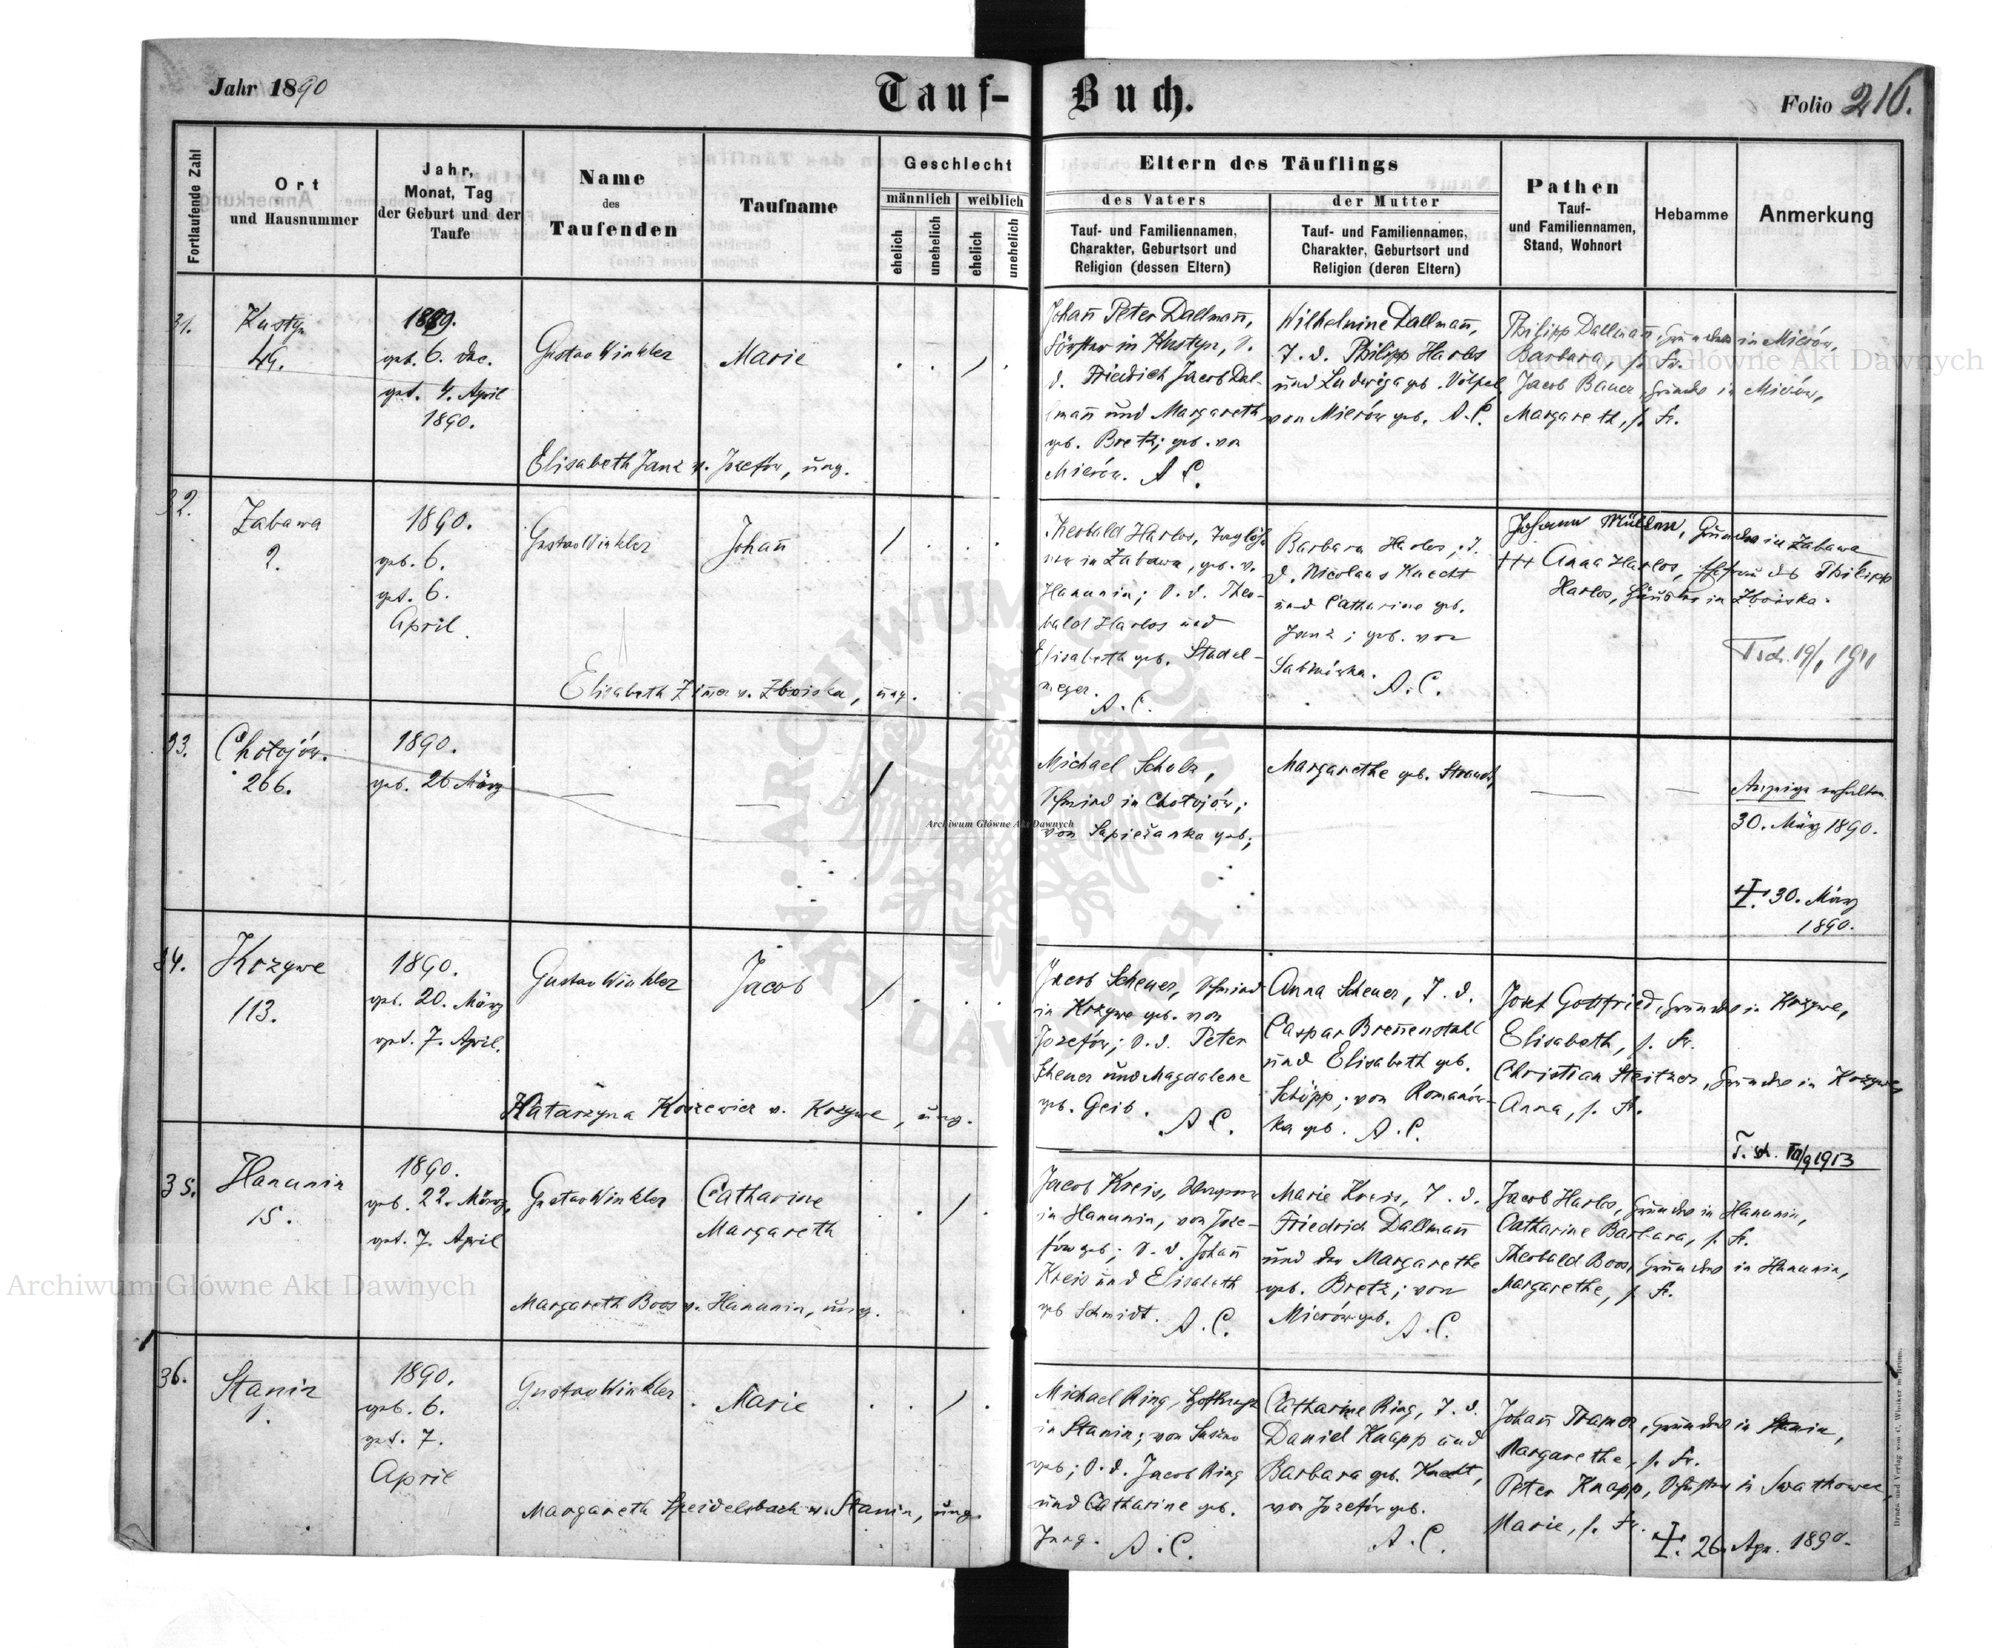 Jahr 1890
Tauf-Buch.
Folio 216.
Fortlaufende Zahl
Ort
und Hausnummer
Jahr,
Monat, Tag
der Geburt und der
Taufe
Name
des
Taufenden
Taufname
Geschlecht
männlich
weiblich
ehelich
unehelich
ehelich
unehelich
Eltern des Täuflings
des Vaters
Tauf- und Familiennamen,
Charakter, Geburtsort und
Religion (dessen Eltern)
der Mutter
Tauf- und Familiennamen,
Charakter, Geburtsort und
Religion (deren Eltern)
Pathen
Tauf-
und Familiennamen,
Stand, Wohnort
Hebamme
Anmerkung
31.
Kustyn
49.
1889.
geb. 6. Dec.
get. 4. April
1890.
Gustav Winkler
Marie
Elisabeth Janz v. Jozefów, ung.
Johann Peter Dallmann,
Förster in Kustyn, S.
d. Friedrich Jacob Dal-
lmann und Margareth
geb. Bretz; geb. von
Mierów. A. C.
Wilhelmine Dallmann,
T. d. Philipp Harlos
und Ludwiga geb. Völpel
von Mierów geb. A. C.
Philipp Dallmann, Grundw in Mierów,
Barbara, s. Fr.
Jacob Bauer, Grundw in Mierów,
Margareth, s. Fr.
32.
Zabawa
2.
1890.
geb. 6.
get. 6.
April.
Gustav Winkler
Johann
Elisabeth Zimer v. Zboiska, ung.
Theobald Harlos, Taglöh-
ner in Zabawa, geb. v.
Hanunin; S. d. Theo-
bald Harlos und
Elisabeth geb. Stadel-
meyer. A. C.
Barbara Harlos, T.
d. Nicolaus Knecht
und Catharine geb.
Janz; geb. von
Sabinówka. A. C.
Johann Müller, Grundw in Zabawa
+++ Anna Harlos, Ehefrau des Philipp
Harlos, in Zboiska.
T sch. 19/1 1911
33.
Chołojów.
266.
1890.
geb. 26 März
Michael Scholz,
Schmied in Chołojów;
von Sapieżanka geb;
Margarethe geb. Strauch,
Anzeige erhalten
30. März 1890.
30. März
1890.
34.
Krzywe
113.
1890.
geb. 20. März
get. 7. April.
Gustav Winkler
Jacob
Katarzyna Korzewicz v. Krzywe, ung.
Jacob Scheuer, Schmied
in Krzywe geb. von
Jozefów; S. d. Peter
Scheuer und Magdalene
geb. Geib. A C.
Anna Scheuer, T. d.
Caspar Brennenstall
und Elisabeth geb.
Schöpp; von Romanów-
ka geb. A. C.
Josef Gottfried, Grundw in Krzywe,
Elisabeth, s. Fr.
Christian Steitzer, Grundw in Krzywe,
Anna, s. Fr.
T. sch. 1913
35.
Hanunin
15.
1890.
geb. 22. März,
get. 7. April
Gustav Winkler
Catharine
Margareth
Margareth Boos v. Hanunin, ung.
Jacob Kreis,
in Hanunin, von Joze-
fów geb; S. d. Johann
Kreis und Elisabeth
geb Schmidt. A. C.
Marie Kreis, T. d.
Friedrich Dallmann
und der Margarethe
geb. Bretz; von
Mierów geb. A. C.
Jacob Harlos, Grundw in Hanunin,
Catharine Barbara, s. Fr.
Theobald Boos, Grundw in Hanunin,
Margarethe, s. Fr.
36.
Stanin
1.
1890.
geb. 6.
get. 7.
April
Gustav Winkler
Marie
Margareth Speidelsbach v. Stanin, ung.
Michael Ring,
in Stanin; von
geb; S. d. Jacob Ring
und Catharine geb.
Jung. A. C.
Catharine Ring, T. d.
Daniel Knapp und
Barbara geb. Knecht,
von Jozefów geb.
A. C.
Johann Tramer, Grundw in Stanin,
Margarethe, s. Fr.
Peter Knapp, in
Marie, s. Fr.
26. Apr. 1890.
Archiwum Główne Akt Dawnych
Archiwum Główne Akt Dawnych
Archiwum Główne Akt Dawnych
ARCHIWUM GŁÓWNE AKT DAWNYCH